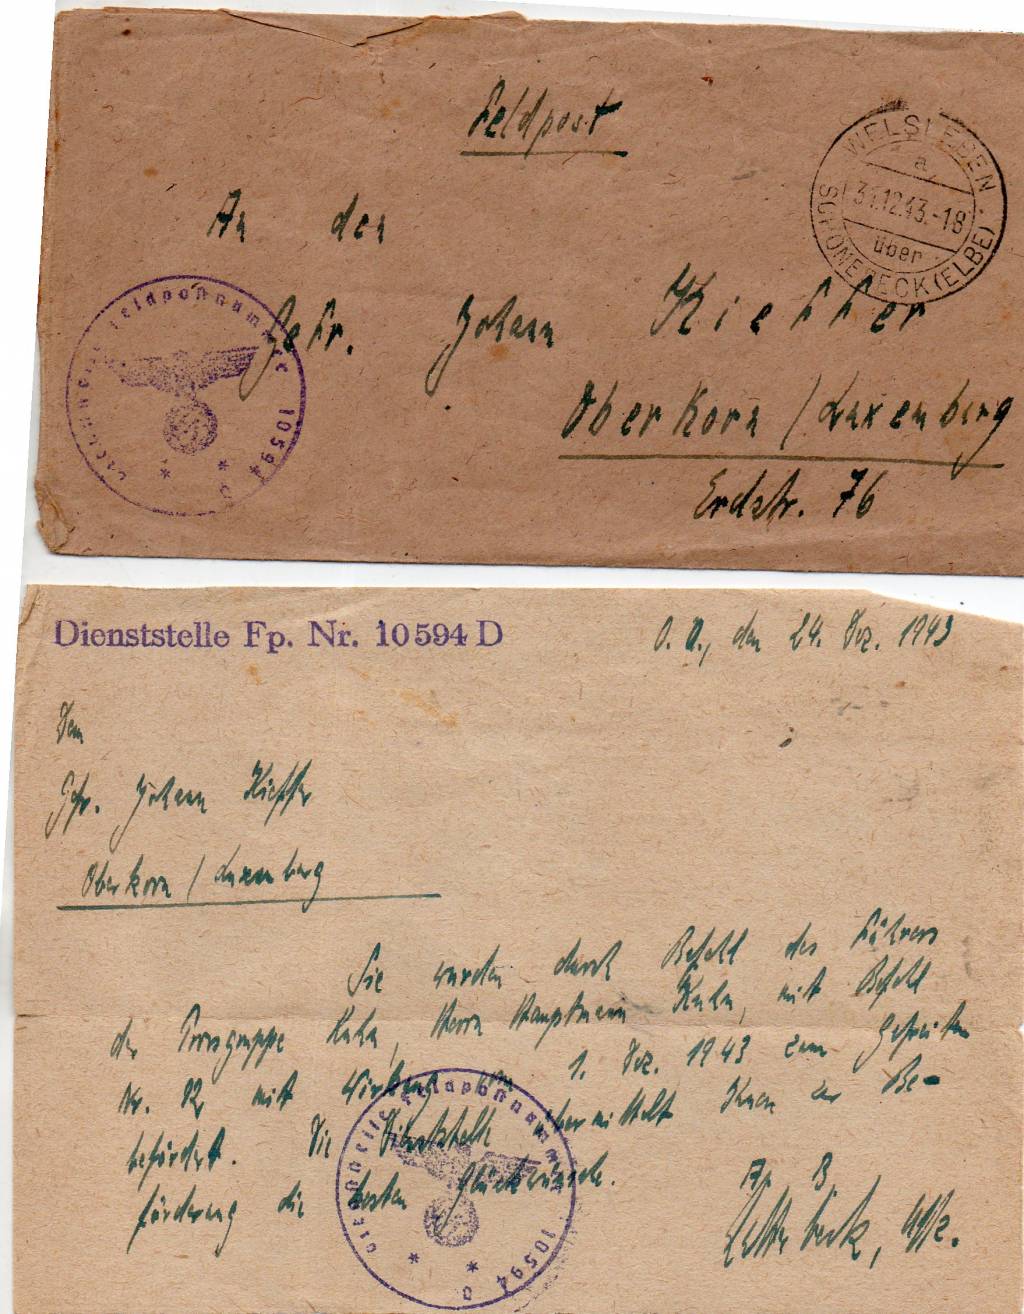 Feldpost
WELSLEBEN
a
31.12.43.-18
über
SCHÖNEBECK (ELBE)
An den
Gefr. Johann Kieffer
Oberkorn / Luxemburg
Erdstr. 76
Dienststelle Feldpostnummer 10594 D
Dienststelle Fp. Nr. 10594 D
O. U., den 24. Dez. 1943
Dem
Gefr. Johann Kieffer
Oberkorn / Luxemburg
Sie wurden durch Befehl des Führers
der Kuhn, Herrn Hauptmann Kuhn, mit Befehl
Nr. mit Wirkung vom 1. Dez. 1943 zum Gefreiten
befördert. Die Dienststelle übermittelt Ihnen zur Be-
förderung die besten Glückwünsche.
Uffz.
Dienststelle Feldpostnummer 10594 D